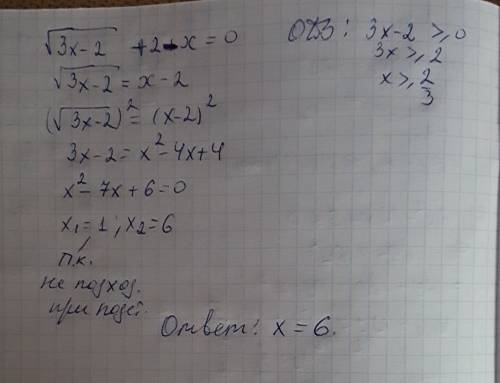 √3x-2 +2-x=0
√3x-2 = x-2
(√3x-2)² = (x-2)²
3x-2 = x²-4x+4
x²-7x+6=0
x₁=1; x₂=6
п.к.
не подход.
при подст.
ОДЗ: 3x-2 ⩾ 0
3x ⩾ 2
x ⩾ 2/3
Ответ: x=6.